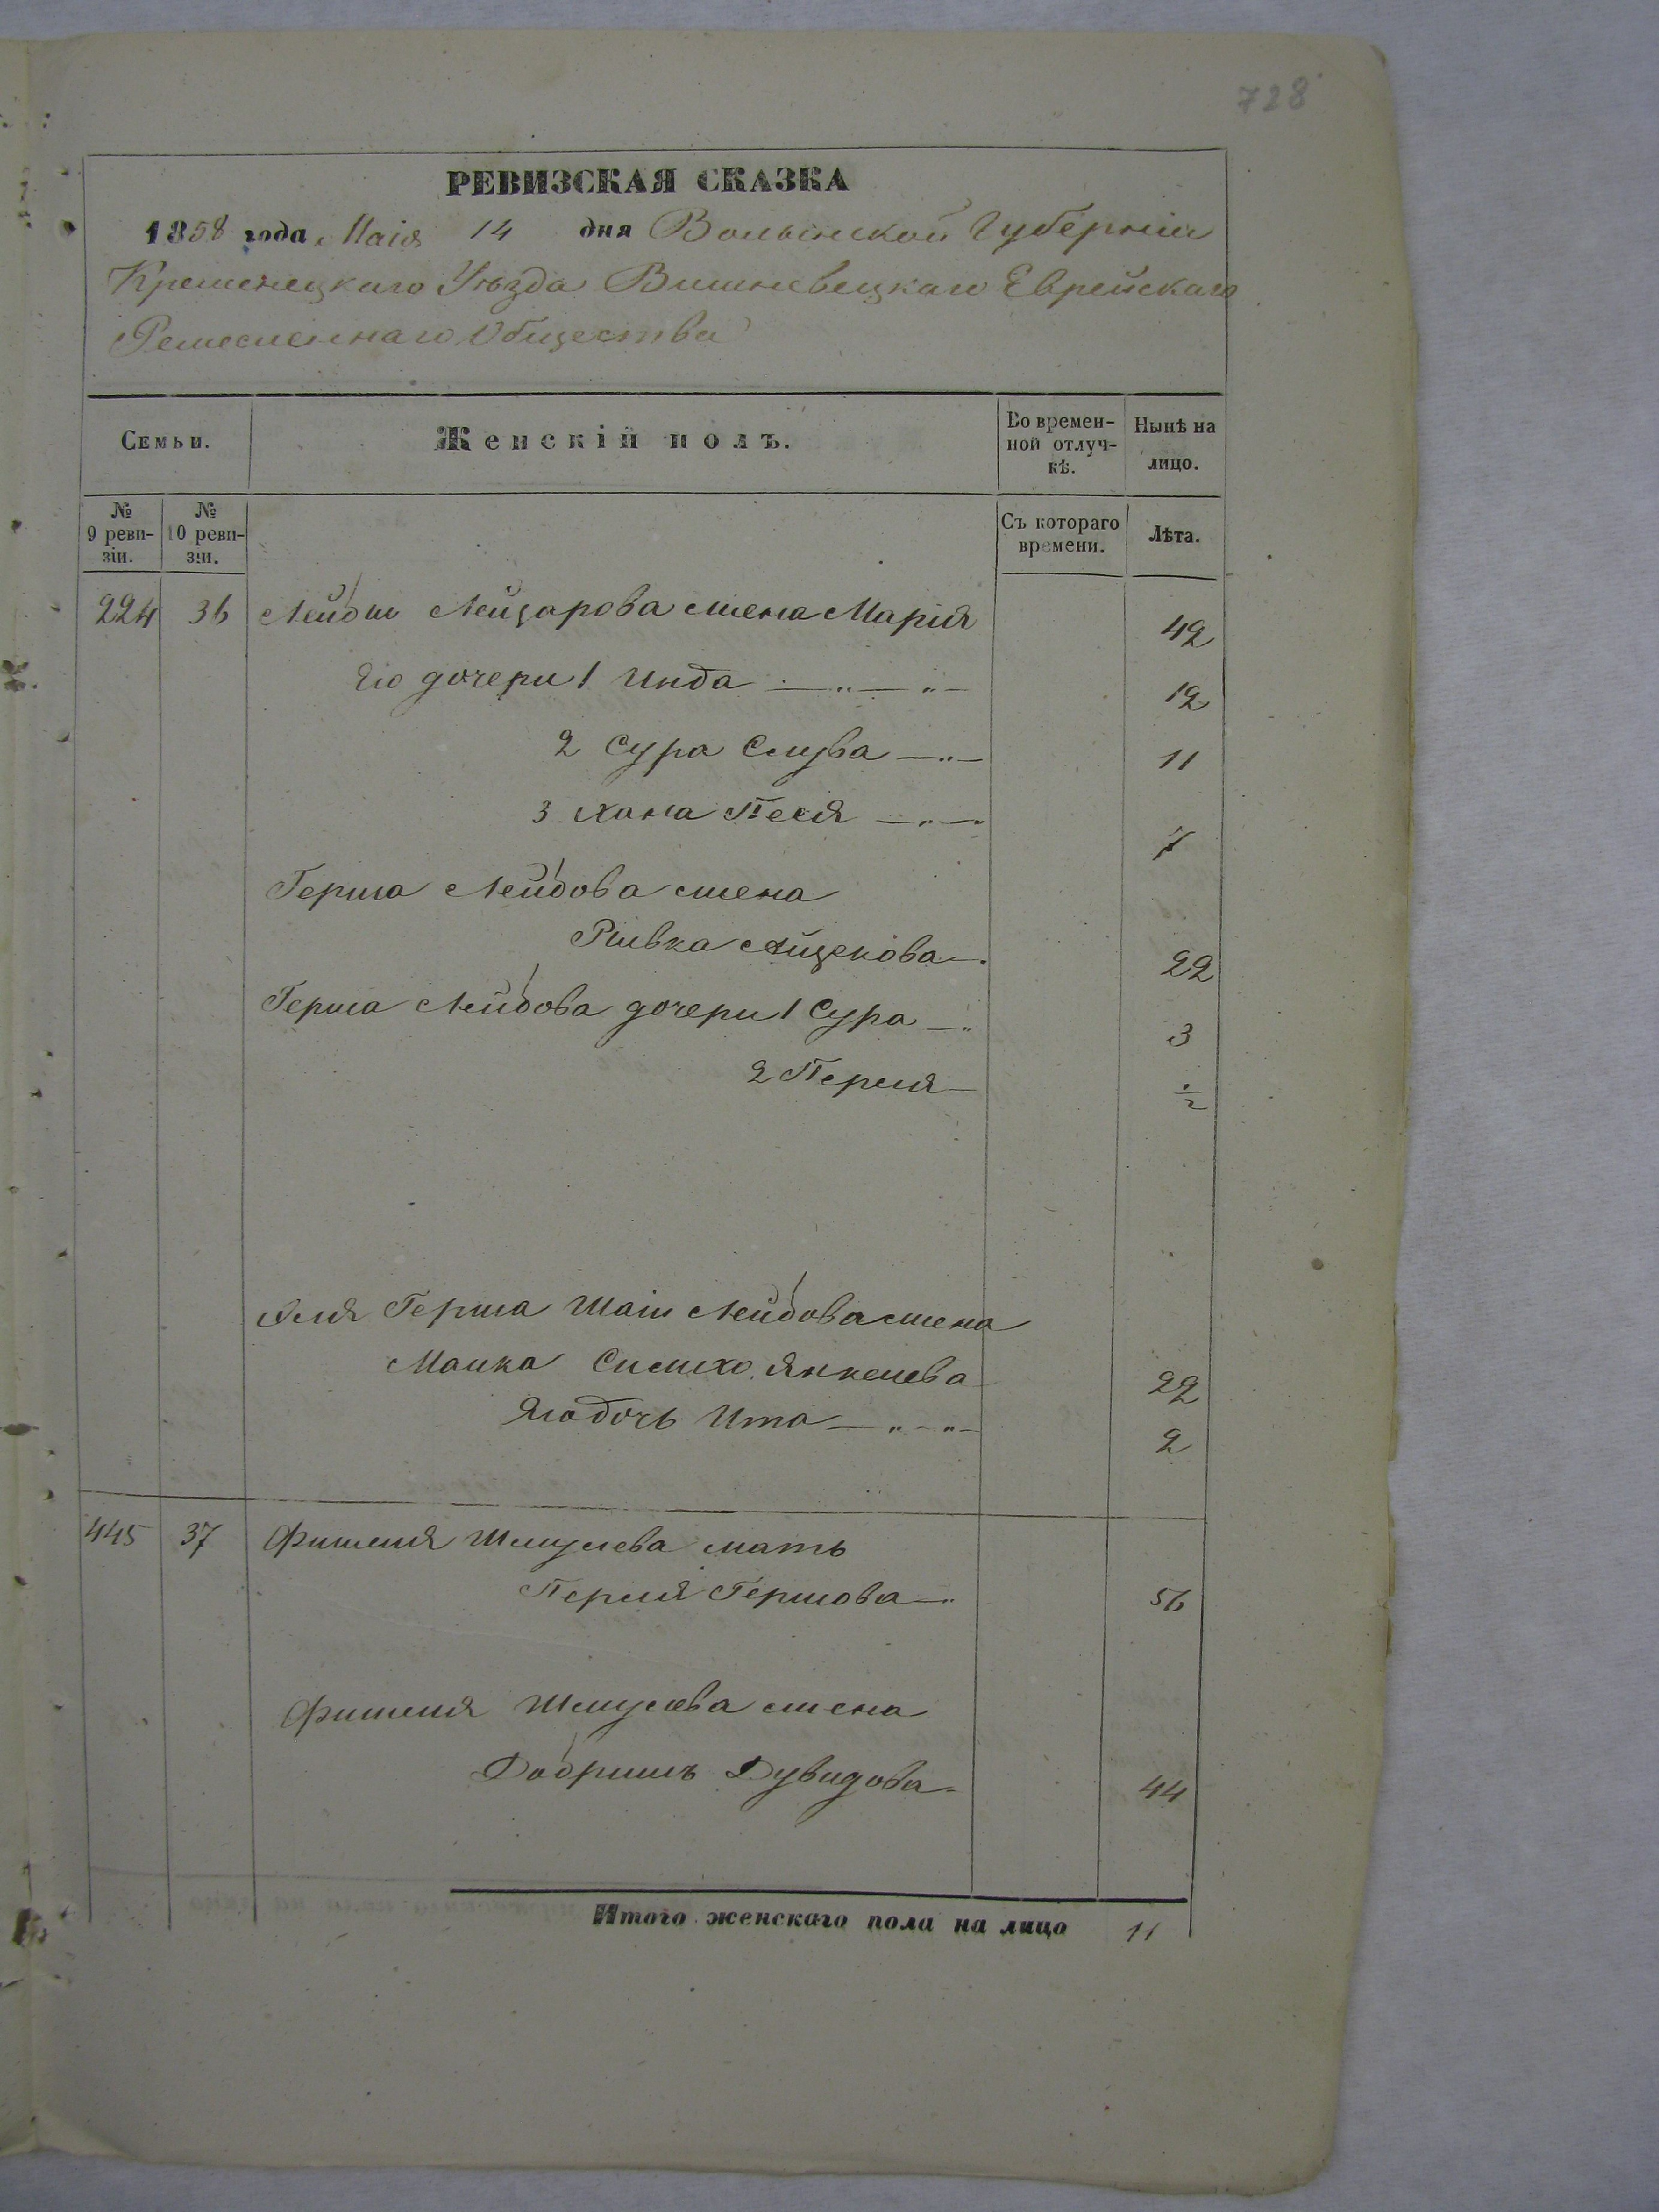 728
РЕВИЗСКАЯ СКАЗКА
1858 года Маія 14 дня Волынской Губерніи
Кременецкаго Уѣзда Вишневецкаго Еврейскаго
Ремесленнаго Общества
Семьи.
Женскій полъ.
Во времен-
ной отлуч-
кѣ.
Нынѣ на
лицо.
№
9 реви-
зіи.
№
10 реви-
зіи.
Съ котораго
времени.
Лѣта.
224 36 Лейбы Лейзарова жена Марія 42
Его дочери 1 Инда 12
2 Сура Слува 11
3 Хана Песя 7
Герша Лейбова жена
Ривка Айзекова 22
Герша Лейбова дочери 1 Сура 3
2 Перля ½
Герша Шаи Лейбова жена
Малка Янкелева 22
Его дочь Ита 2
445 37 Фишеля Шмулева мать
Перля Гершова 56
Фишеля Шмулева жена
Добришъ Дувидова 44
Итого женскаго пола на лицо 11